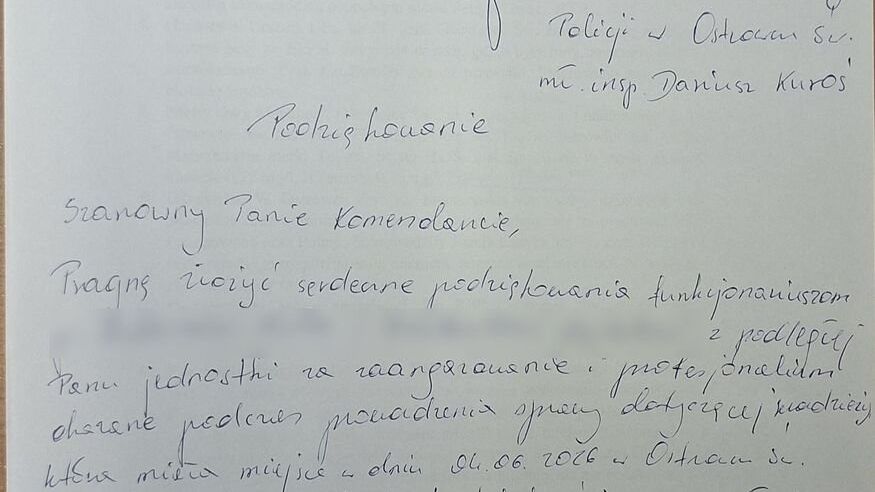 Policji w Ostrowie Św.
mł. insp. Dariusz Kuroś
Podziękowanie
Szanowny Panie Komendancie,
Pragnę złożyć serdeczne podziękowania funkcjonariuszom
z podległej
Panu jednostki za zaangażowanie i profesjonalizm
okazane podczas prowadzenia sprawy dotyczącej kradzieży,
która miała miejsce w dniu 04.06.2026 w Ostrowie Św.